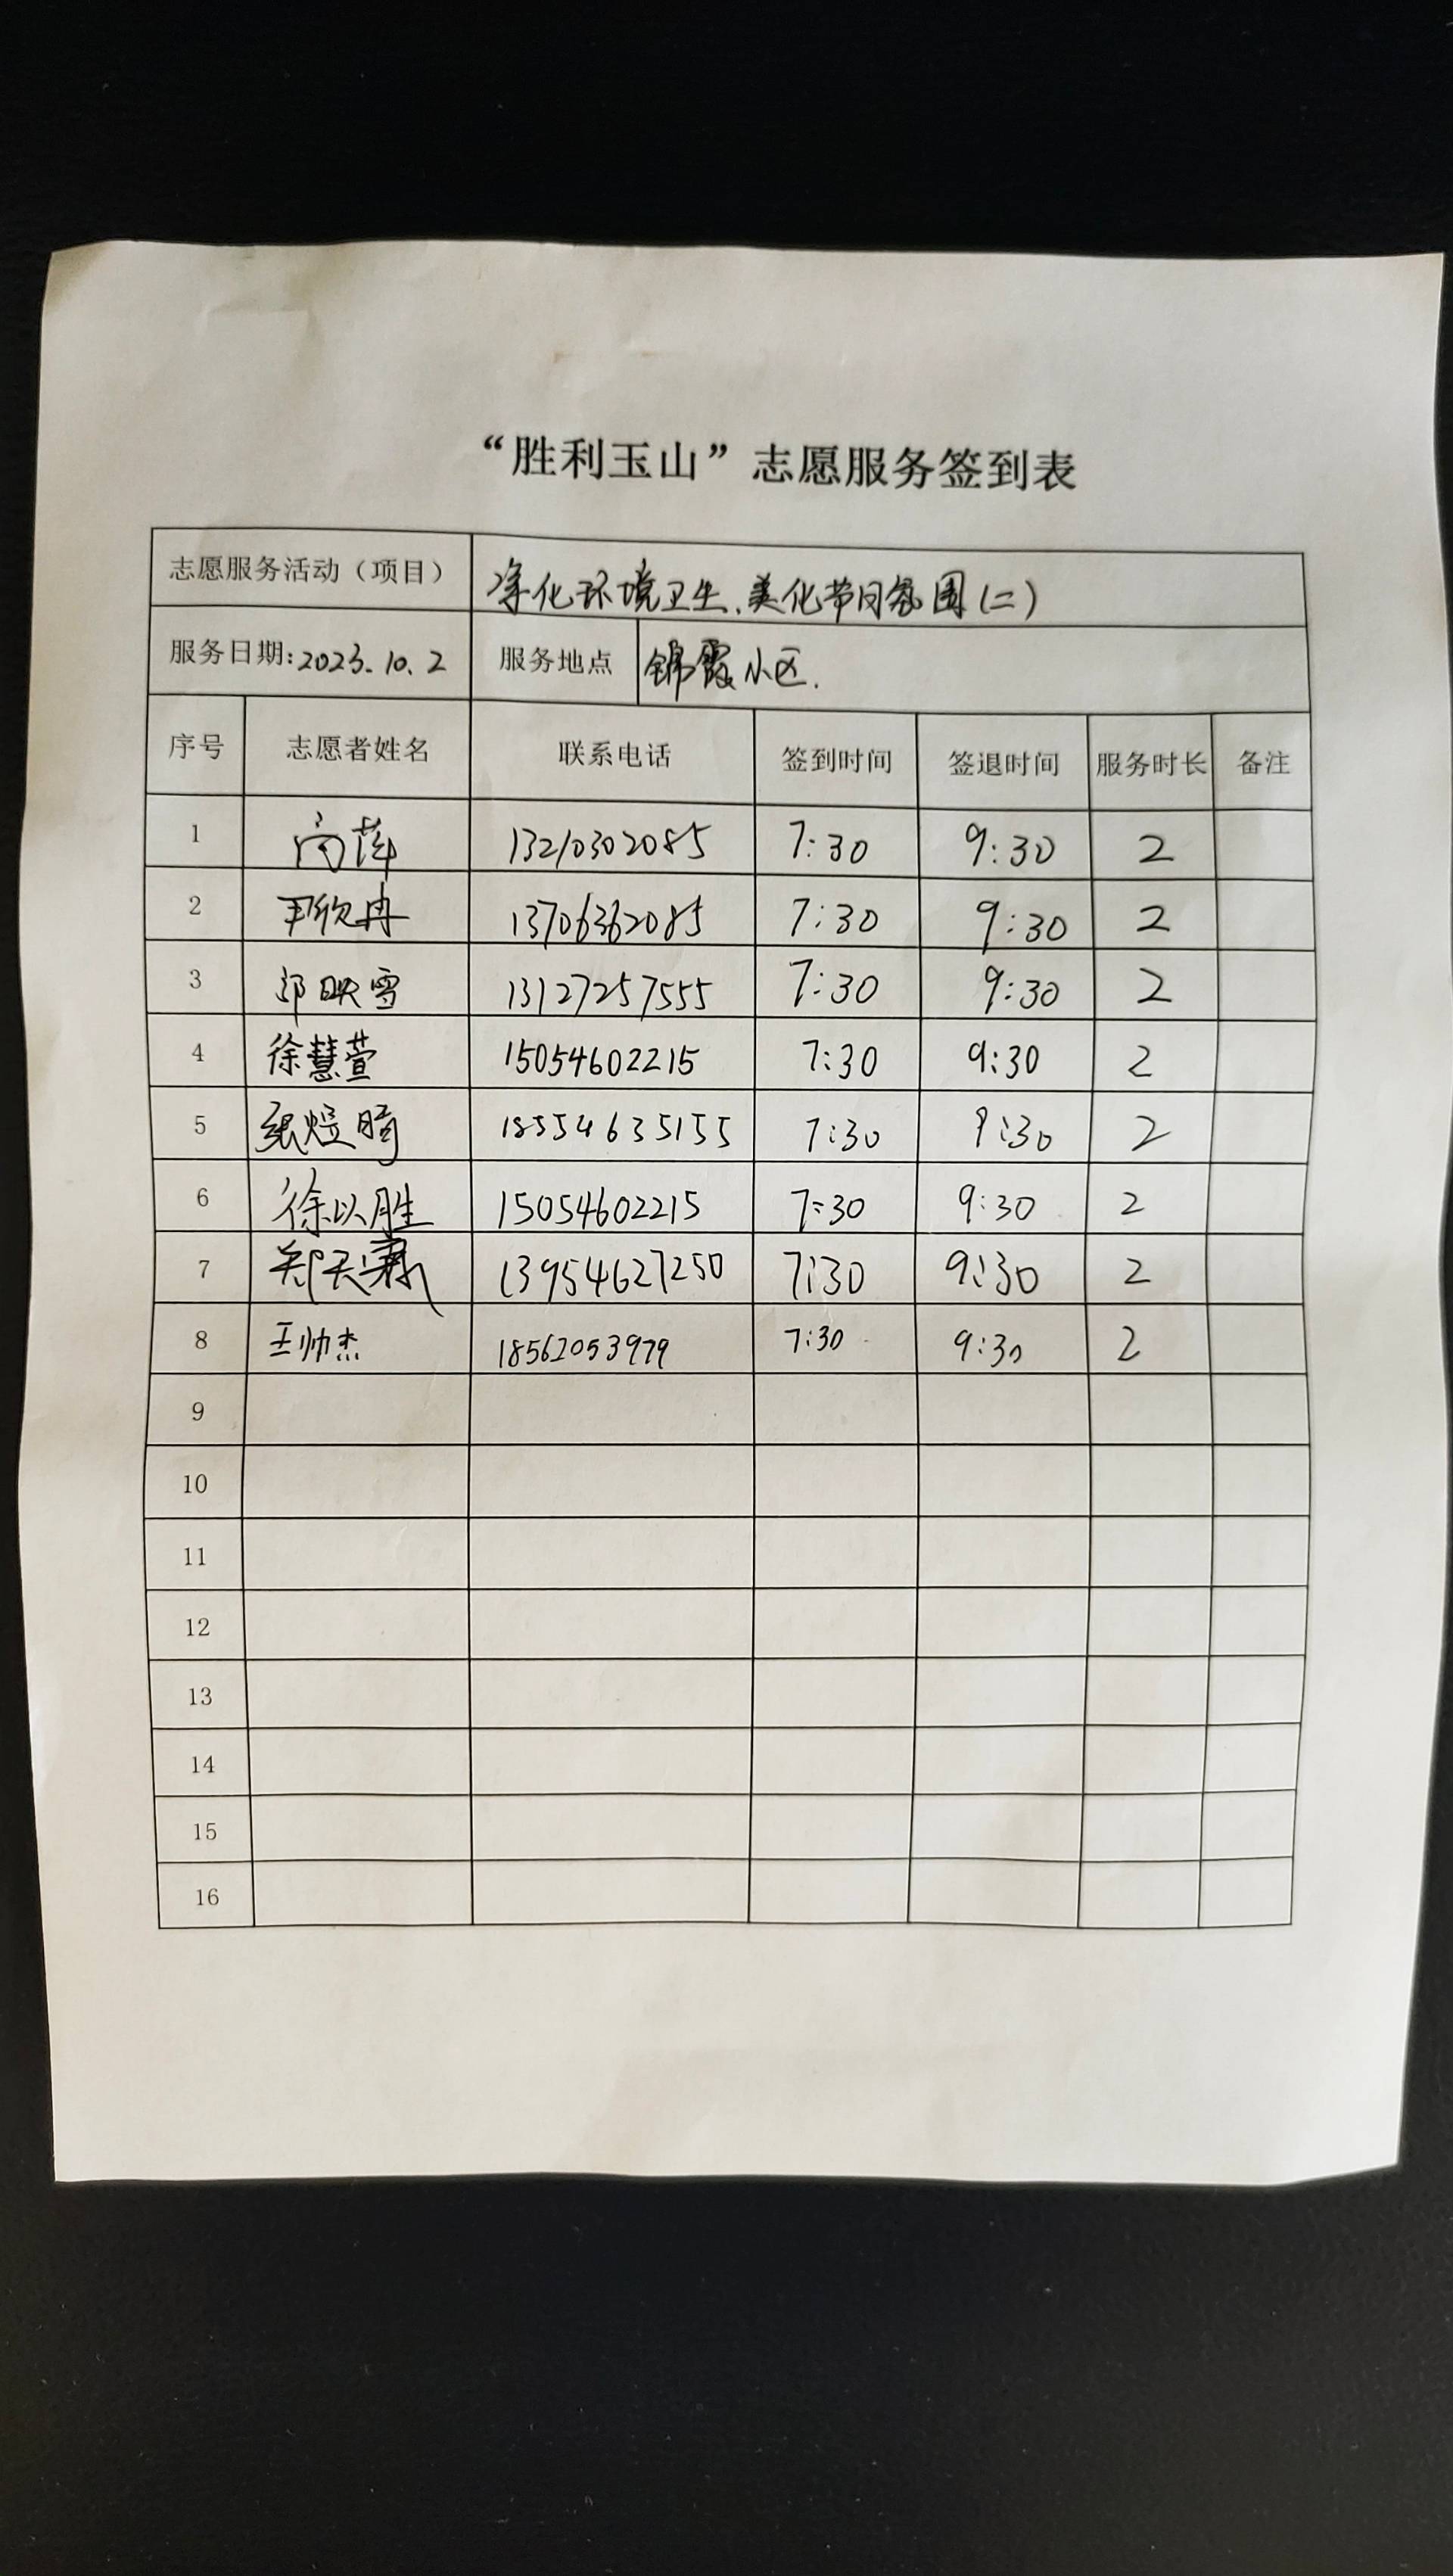 “胜利玉山”志愿服务签到表
志愿服务活动（项目） 净化环境卫生、美化节日氛围(二)
服务日期:2023.10.2 服务地点 锦霞小区.
序号 志愿者姓名 联系电话 签到时间 签退时间 服务时长 备注
1 高萍 13210302085 7:30 9:30 2
2 尹欣冉 13706362085 7:30 9:30 2
3 邱映雪 13127257555 7:30 9:30 2
4 徐慧萱 15054602215 7:30 9:30 2
5 张煜晴 18554635155 7:30 9:30 2
6 徐以胜 15054602215 7:30 9:30 2
7 郑天 13954627250 7:30 9:30 2
8 王帅杰 18562053979 7:30 9:30 2
9
10
11
12
13
14
15
16